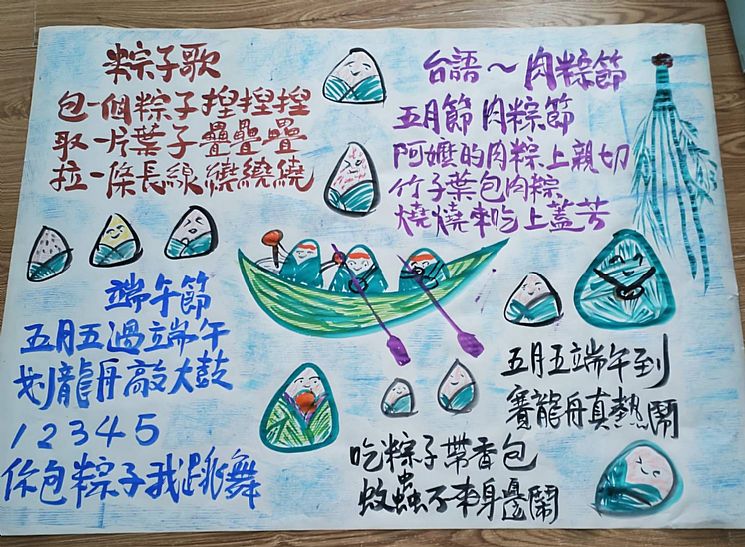 粽子歌
包一個粽子捏捏捏
取一片葉子疊疊疊
拉一條長線繞繞繞
台語～肉粽節
五月節肉粽節
阿嬤的肉粽上親切
竹子葉包肉粽
燒燒來吃上蓋芳
端午節
五月五過端午
划龍舟敲大鼓
12345
你包粽子我跳舞
五月五端午到
賽龍舟真熱鬧
吃粽子帶香包
蚊蟲不來身邊鬧